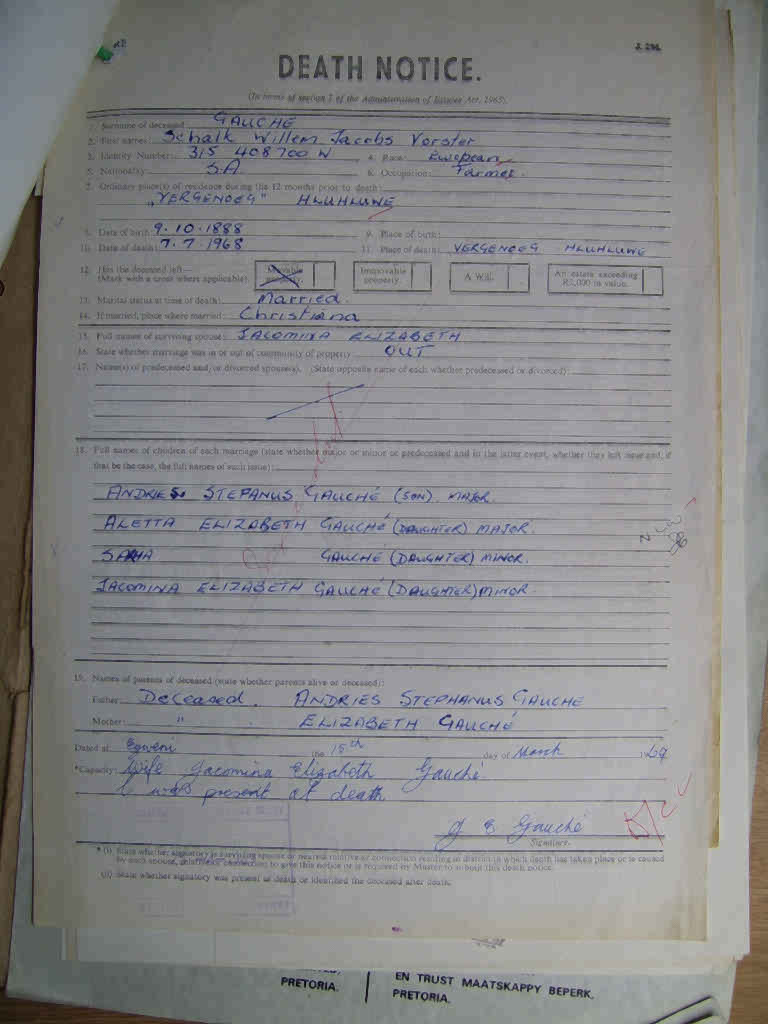 J. 294.
DEATH NOTICE.
(In terms of section 7 of the Administration of Estates Act, 1965).
1. Surname of deceased: GAUCHÉ
2. First names: Schalk Willem Jacobs Vorster
3. Identity Number: 315 408700 W 4. Race: European
5. Nationality: S.A. 6. Occupation: Farmer.
7. Ordinary place(s) of residence during the 12 months prior to death:
"VERGENOEG" HLUHLUWE
8. Date of birth: 9.10.1888 9. Place of birth:
10. Date of death: 7.7.1968 11. Place of death: VERGENOEG HLUHLUWE
12. Has the deceased left— Movable Immovable A Will. An estate exceeding
(Mark with a cross where applicable). property. property. R2,000 in value.
13. Marital status at time of death: Married.
14. If married, place where married: Christiana
15. Full names of surviving spouse: JACOMINA ELIZABETH
16. State whether marriage was in or out of community of property OUT
17. Name(s) of predeceased and/or divorced spouse(s). (State opposite name of each whether predeceased or divorced):
18. Full names of children of each marriage (state whether major or minor or predeceased and in the latter event, whether they left issue and, if
that be the case, the full names of such issue):
ANDRIES STEPANUS GAUCHÉ (SON). MAJOR.
ALETTA ELIZABETH GAUCHÉ (DAUGHTER) MAJOR.
GAUCHÉ (DAUGHTER) MINOR.
JACOMINA ELIZABETH GAUCHÉ (DAUGHTER) MINOR.
19. Names of parents of deceased (state whether parents alive or deceased):
Father: Deceased. ANDRIES STEPHANUS GAUCHE
Mother: " ELIZABETH GAUCHÉ
Dated at Egweni the 15th day of March 1969
*Capacity: Wife Jacomina Elizabeth Gauché.
I was present at death
J E Gauché
Signature.
* (i) State whether signatory is surviving spouse or nearest relative or connection residing in district in which death has taken place or is caused
by such spouse, relative or connection to give this notice or is required by Master to submit this death notice.
(ii) State whether signatory was present at death or identified the deceased after death.
PRETORIA.
EN TRUST MAATSKAPPY BEPERK,
PRETORIA.